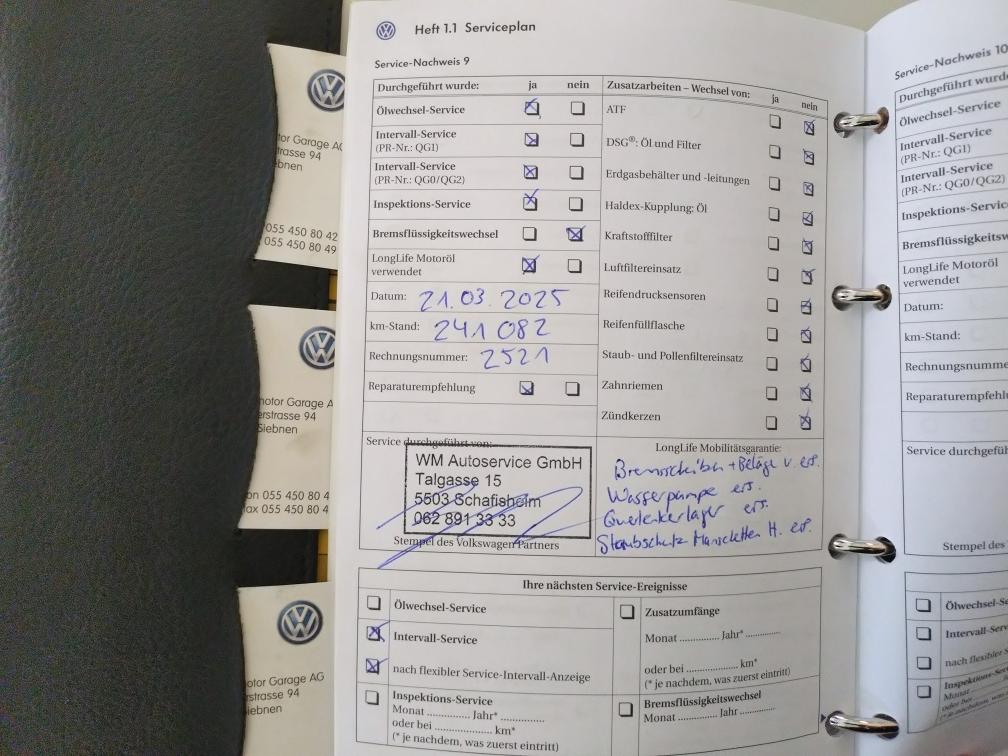 Heft 1.1 Serviceplan
Service-Nachweis 9
Durchgeführt wurde: ja nein
Ölwechsel-Service
Intervall-Service
(PR-Nr.: QG1)
Intervall-Service
(PR-Nr.: QG0/QG2)
Inspektions-Service
Bremsflüssigkeitswechsel
LongLife Motoröl
verwendet
Datum: 21.03.2025
km-Stand: 241 082
Rechnungsnummer: 2521
Reparaturempfehlung
Zusatzarbeiten – Wechsel von: ja nein
ATF
DSG®: Öl und Filter
Erdgasbehälter und -leitungen
Haldex-Kupplung: Öl
Kraftstofffilter
Luftfiltereinsatz
Reifendrucksensoren
Reifenfüllflasche
Staub- und Pollenfiltereinsatz
Zahnriemen
Zündkerzen
Service durchgeführt von:
WM Autoservice GmbH
Talgasse 15
5503 Schafisheim
062 891 33 33
Stempel des Volkswagen Partners
LongLife Mobilitätsgarantie:
Bremsscheiben + Beläge v. ers.
Wasserpumpe ers.
Querlenkerlager ers.
Staubschutz Manschetten H. ers.
Ihre nächsten Service-Ereignisse
Ölwechsel-Service
Intervall-Service
nach flexibler Service-Intervall-Anzeige
Inspektions-Service
Monat .............. Jahr* ..............
oder bei .................. km*
(* je nachdem, was zuerst eintritt)
Zusatzumfänge
Monat ............. Jahr* .............
oder bei .................. km*
(* je nachdem, was zuerst eintritt)
Bremsflüssigkeitswechsel
Monat ............. Jahr .............
Service-Nachweis 10
Durchgeführt wurd
Ölwechsel-Service
Intervall-Service
(PR-Nr.: QG1)
Intervall-Service
(PR-Nr.: QG0/QG2)
Inspektions-Servic
Bremsflüssigkeitsw
LongLife Motoröl
verwendet
Datum:
km-Stand:
Rechnungsnumme
Reparaturempfehl
Service durchgefüh
Stempel des
Ölwechsel-Se
Intervall-Serv
nach flexibler S
Inspektions-Se
Monat
oder bei
(* je nachdem, was
otor Garage AG
rstrasse 94
ebnen
055 450 80 42
055 450 80 49
otor Garage A
erstrasse 94
Siebnen
on 055 450 80 4
ax 055 450 80 4
otor Garage AG
rstrasse 94
iebnen